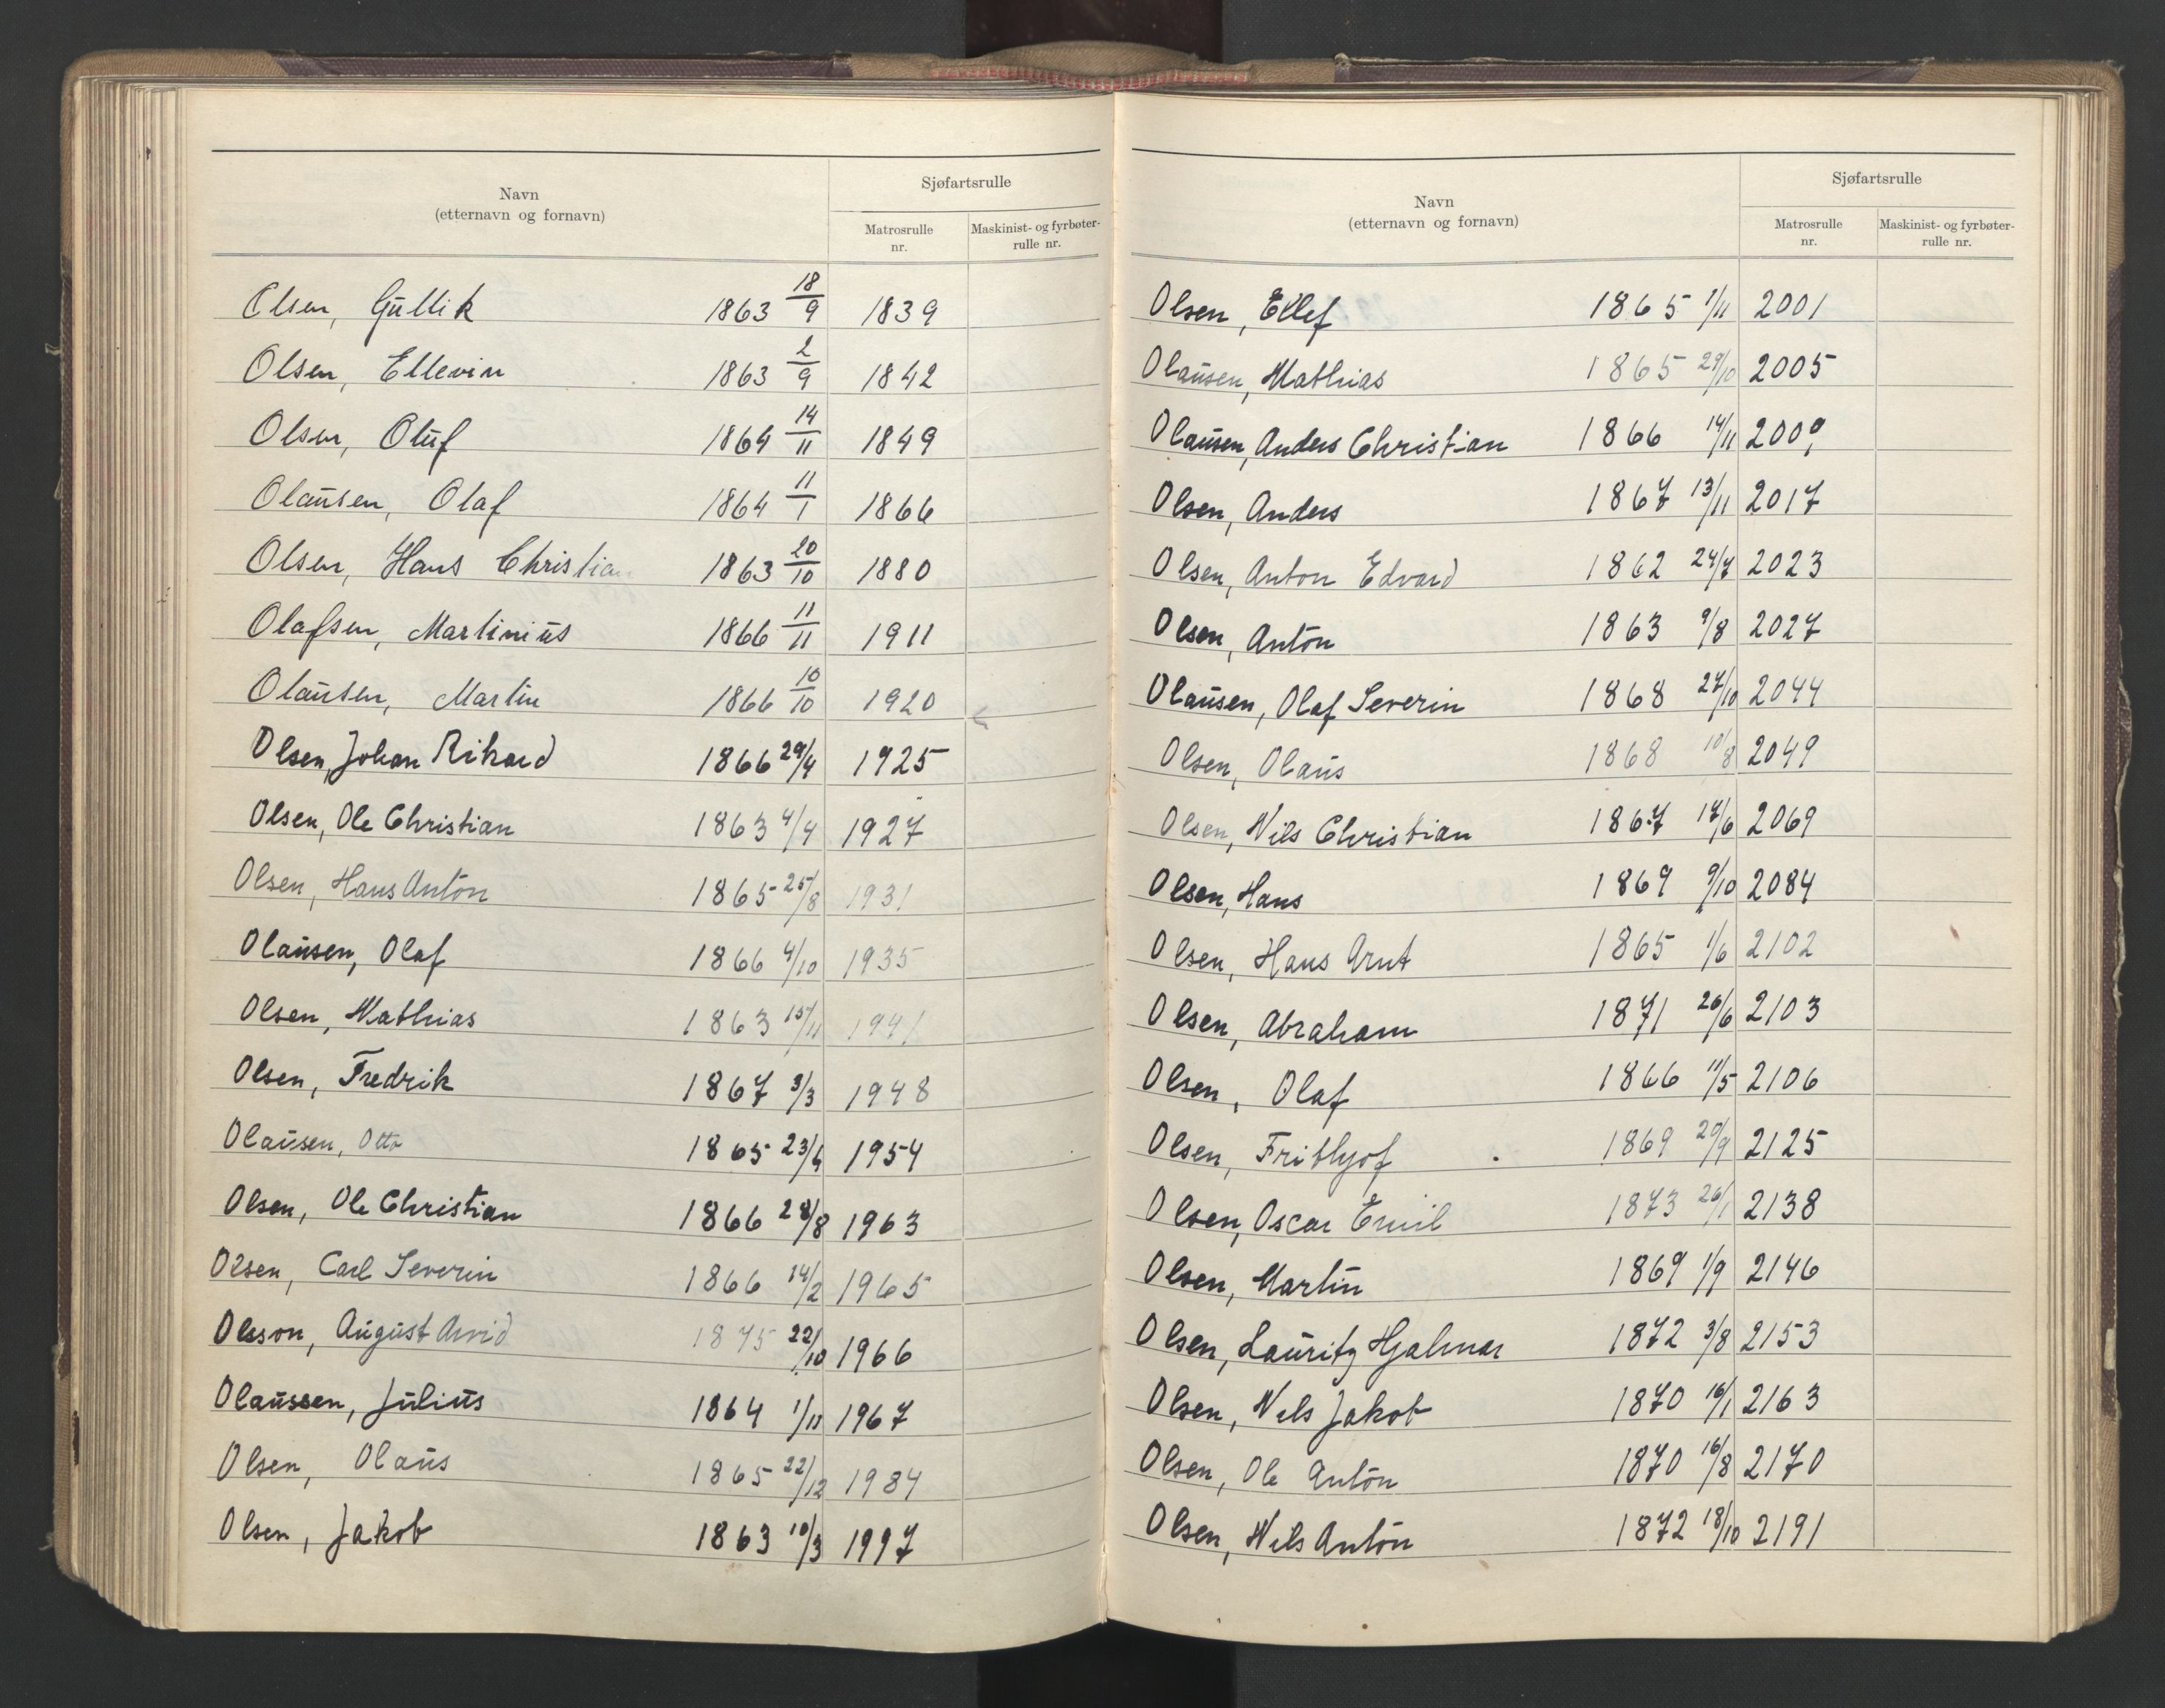 Navn
(etternavn og fornavn)
Sjøfartsrulle
Matrosrulle nr.
Maskinist- og fyrbøter-rulle nr.
Olsen, Gullik 1863 18/9 1839
Olsen, Ellevin 1863 2/9 1842
Olsen, Oluf 1864 14/11 1849
Olausen, Olaf 1864 11/1 1866
Olsen, Hans Christian 1863 20/10 1880
Olafsen, Martinius 1866 11/11 1911
Olausen, Martin 1866 10/10 1920
Olsen, Johan Rikard 1866 29/4 1925
Olsen, Ole Christian 1863 4/4 1927
Olsen, Hans Anton 1865 25/8 1931
Olausen, Olaf 1866 4/10 1935
Olsen, Mathias 1863 15/11 1941
Olsen, Fredrik 1867 3/3 1948
Olausen, Otto 1865 23/6 1954
Olsen, Ole Christian 1866 28/8 1963
Olsen, Carl Severin 1866 14/2 1965
Olsson, August Arvid 1875 22/10 1966
Olaussen, Julius 1864 1/11 1967
Olsen, Olaus 1865 22/12 1984
Olsen, Jakob 1863 10/3 1997
Navn
(etternavn og fornavn)
Sjøfartsrulle
Matrosrulle nr.
Maskinist- og fyrbøter-rulle nr.
Olsen, Ellef 1865 1/11 2001
Olausen, Mathias 1865 29/10 2005
Olausen, Anders Christian 1866 14/11 2009
Olsen, Anders 1867 13/11 2017
Olsen, Anton Edvard 1862 24/7 2023
Olsen, Anton 1863 9/8 2027
Olausen, Olaf Severin 1868 27/10 2044
Olsen, Olaus 1868 10/8 2049
Olsen, Nils Christian 1867 17/6 2069
Olsen, Hans 1869 9/10 2084
Olsen, Hans Arnt 1865 1/6 2102
Olsen, Abraham 1871 26/6 2103
Olsen, Olaf 1866 11/5 2106
Olsen, Frithjof 1869 20/9 2125
Olsen, Oscar Emil 1873 26/1 2138
Olsen, Martin 1869 1/9 2146
Olsen, Lauritz Hjalmar 1872 3/8 2153
Olsen, Nils Jakob 1870 16/1 2163
Olsen, Ole Anton 1870 16/8 2170
Olsen, Nils Anton 1872 18/10 2191